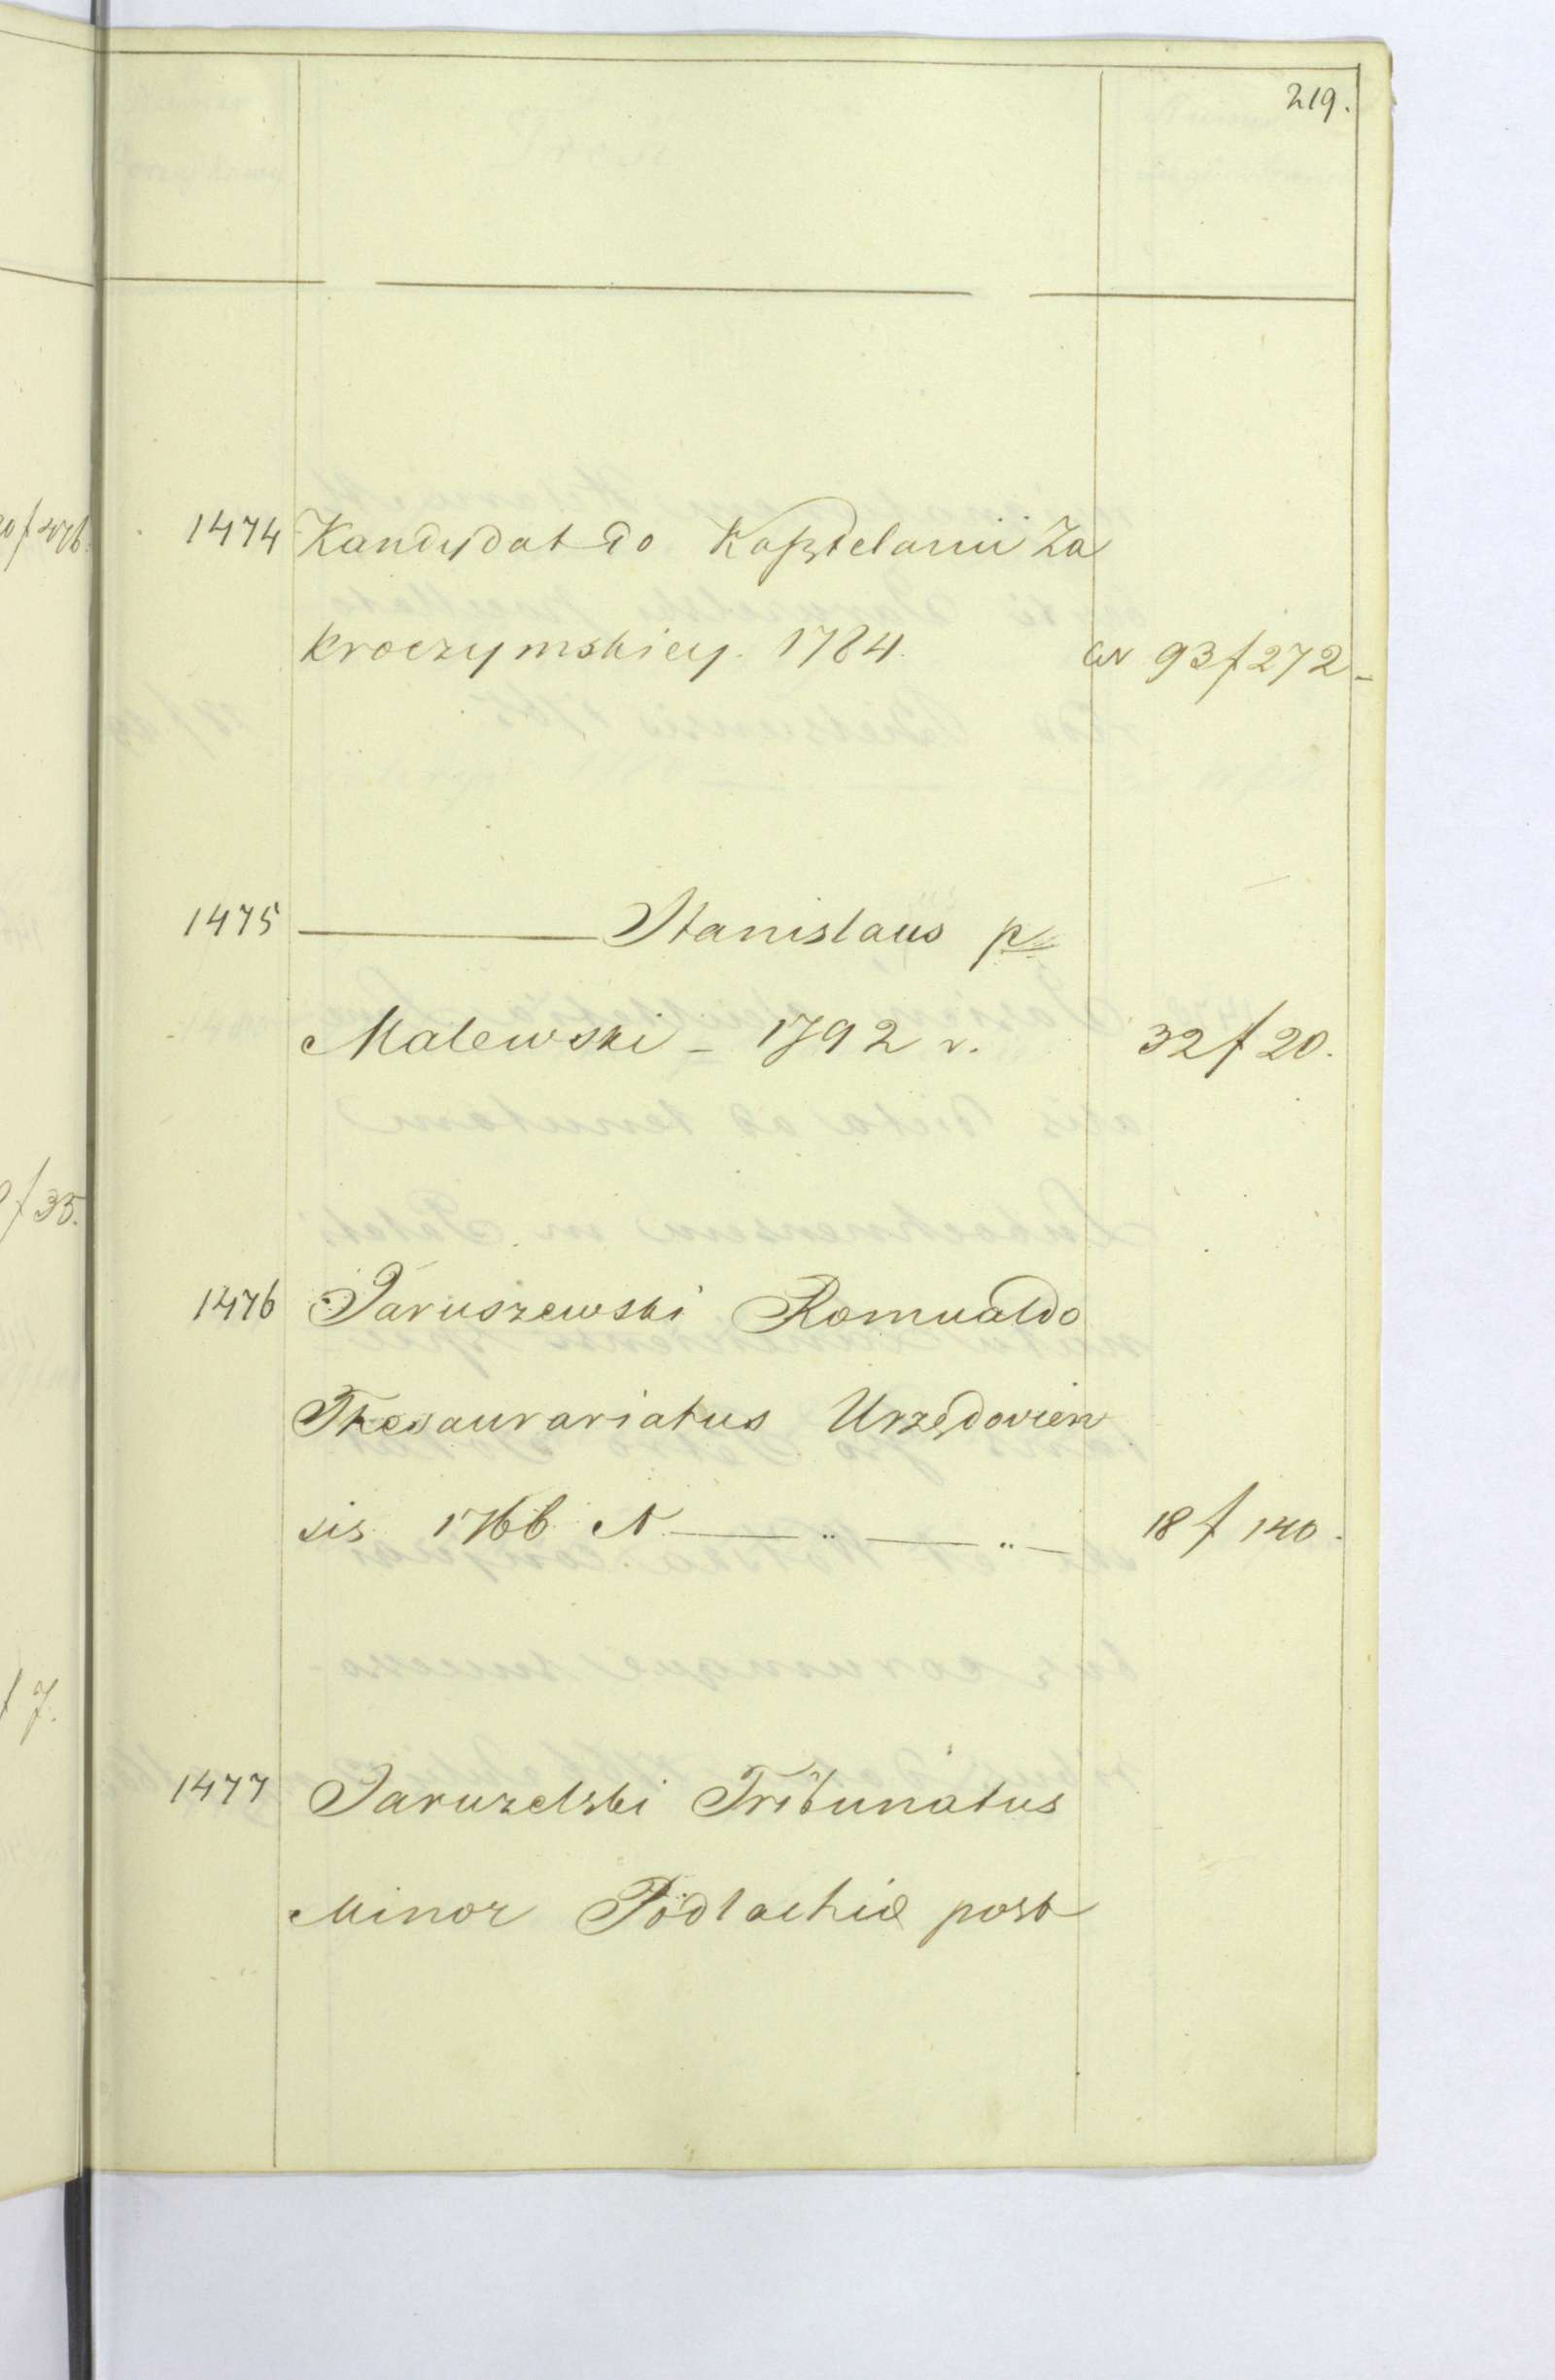 219.
20 f 476.
1474 Kandydat do Kasztelanii Za
kroczymskiey. 1784. w 93 f 272 -
1475 ——— Stanislaus p
Malewski - 1792 r. 32 f 20.
f 35.
1476 Jaruszewski Romualdo
Thesaurariatus Urzędovien
sis 1766 N — „ — „ — 18 f 140.
f 7.
1477 Jaruzelski Tribunatus
Minor Podlachiæ post